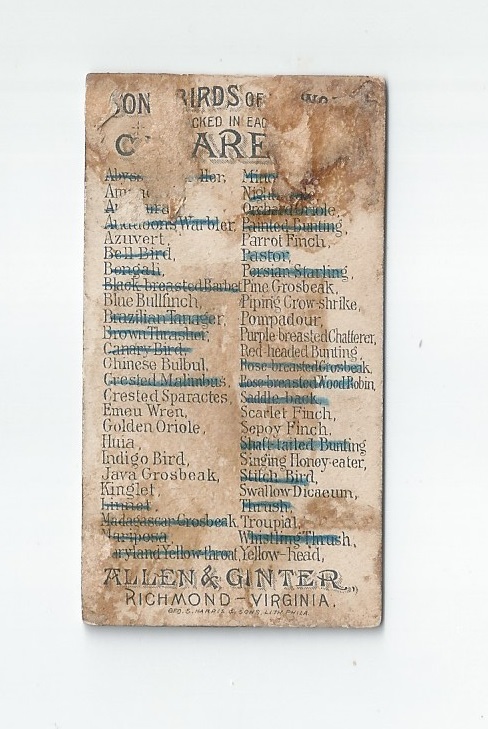 SON BIRDS OF
CKED IN EAC
C ARE
Mino
Night
Orchard Oriole,
Audubons Warbler, Painted Bunting,
Azuvert, Parrot Finch,
Bell Bird, Pastor,
Bengali, Persian Starling,
Black breasted Barbet Pine Grosbeak,
Blue Bullfinch, Piping Crow-shrike,
Brazilian Tanager, Pompadour,
Brown Thrasher, Purple breasted Chatterer,
Canary Bird, Red headed Bunting,
Chinese Bulbul, Rose breasted Grosbeak,
Crested Malimbus, Rose breasted Wood Robin,
Crested Sparactes, Saddle-back,
Emeu Wren, Scarlet Finch,
Golden Oriole, Sepoy Finch,
Huia, Shaft-tailed Bunting
Indigo Bird, Singing Honey-eater,
Java Grosbeak, Stitch Bird,
Kinglet, Swallow Dicaeum,
Linnet, Thrush,
Madagascar Grosbeak, Troupial,
Mariposa Whistling Thrush,
aryland Yellow-throat, Yellow-head,
ALLEN & GINTER
RICHMOND-VIRGINIA.
GEO. S. HARRIS & SONS, LITH. PHILA.